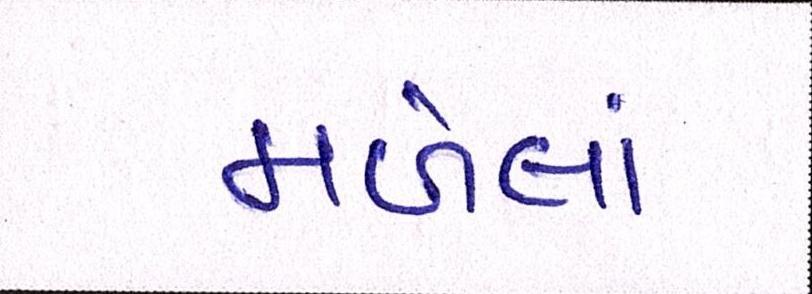 મળેલાં